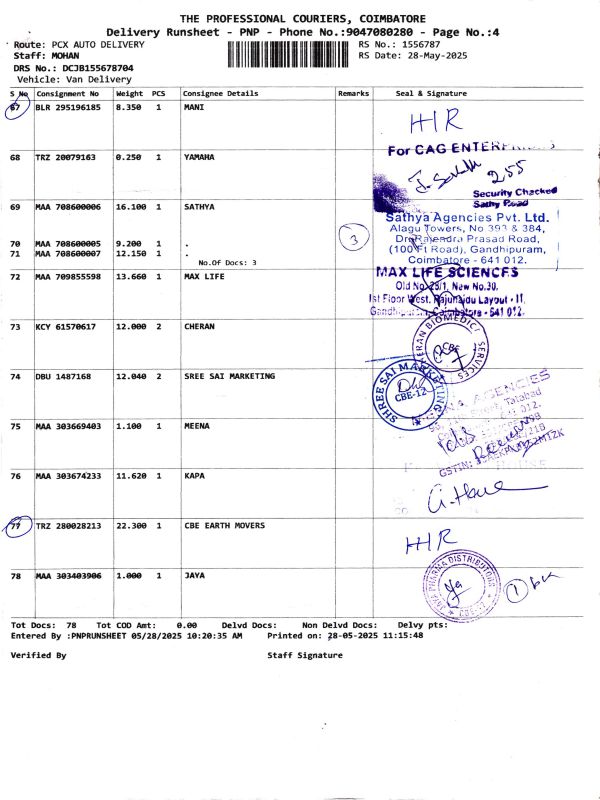 THE PROFESSIONAL COURIERS, COIMBATORE
Delivery Runsheet - PNP - Phone No.:9047080280 - Page No.:4
Route: PCX AUTO DELIVERY
RS No.: 1556787
Staff: MOHAN
RS Date: 28-May-2025
DRS No.: DCJB155678704
Vehicle: Van Delivery
S No Consignment No Weight PCS Consignee Details Remarks Seal & Signature
67 BLR 295196185 8.350 1 MANI
HIR
For CAG ENTERPRISES
68 TRZ 20079163 0.250 1 YAMAHA
255
Security Checked
Sathy Road
69 MAA 708600006 16.100 1 SATHYA
Sathya Agencies Pvt. Ltd.
Alagu Towers, No 393 & 384,
70 MAA 708600005 9.200 1 .
3
Dr. Rajendra Prasad Road,
71 MAA 708600007 12.150 1 .
(100 Ft Road), Gandhipuram,
No.Of Docs: 3
Coimbatore - 641 012.
72 MAA 709855598 13.660 1 MAX LIFE
MAX LIFE SCIENCES
Old No. 25/1, New No.30,
1st Floor West, Rajunaidu Layout - II,
Gandhipuram, Coimbatore - 641 012.
73 KCY 61570617 12.000 2 CHERAN
CHERAN BIOMEDICAL SERVICES
CBE
74 DBU 1487168 12.040 2 SREE SAI MARKETING
SHREE SAI MARKETING
CBE-12
AGENCIES
Street, Tatabad
012.
75 MAA 303669403 1.100 1 MEENA
GSTIN:
76 MAA 303674233 11.620 1 KAPA
77 TRZ 280028213 22.300 1 CBE EARTH MOVERS
HIR
78 MAA 303403906 1.000 1 JAYA
JAYA PHARMA DISTRIBUTORS
1 bx
Tot Docs: 78 Tot COD Amt: 0.00 Delvd Docs: Non Delvd Docs: Delvy pts:
Entered By :PNPRUNSHEET 05/28/2025 10:20:35 AM Printed on: 28-05-2025 11:15:48
Verified By Staff Signature